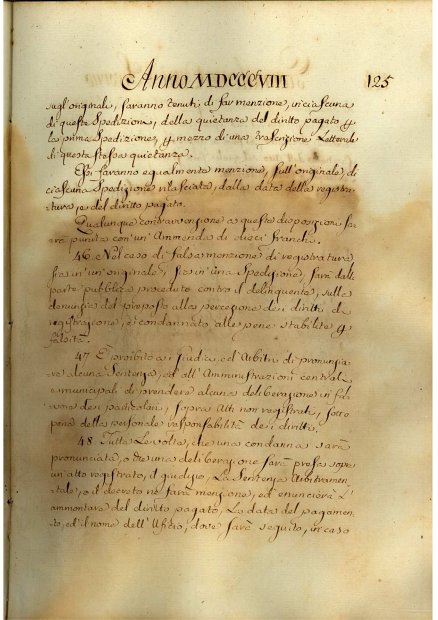 Anno MDCCCVIII 125
sugl'originali, saranno tenuti di far menzione, in ciascuna
di queste Spedizioni, della quietanza del diritto pagato p
la prima Spedizione, p mezzo di una trascrizione Letterale
di questa stessa quietanza.
Essi faranno egualmente menzione, sull'originale, di
ciascuna Spedizione rilasciata, dalla data della registra
tura, e del diritto pagato.
Qualunque contravvenzione a queste disposizioni sa
rà punita con un'Ammenda di dieci franchi.
46 Nel caso di falsa menzione di registratura
sia in un originale, sia in una Spedizione, sarà dalla
parte pubblica proceduto contro il delinquente, sulla
denunzia del preposto alla percezione dei diritti di
registrazione, è condannato alle pene stabilite p
falsità.
47 È proibito ai Giudici, ed Arbitri di pronunzia
re alcuna Sentenza, ed all'Amministrazioni centrali
e municipali di prendere alcuna deliberazione in fa
vore dei particolari, sopra Atti non registrati, sotto
pena della personale responsabilità dei diritti.
48 Tutte Le volte, che una condanna sarà
pronunciata, o che una deliberazione sarà presa sopra
un atto registrato, il giudizio, La Sentenza Arbitramen
tale, o il decreto ne farà menzione, ed enuncierà L'
ammontare del diritto pagato, La data del pagamen
to, ed il nome dell'Uffizio, dove sarà seguito, in caso